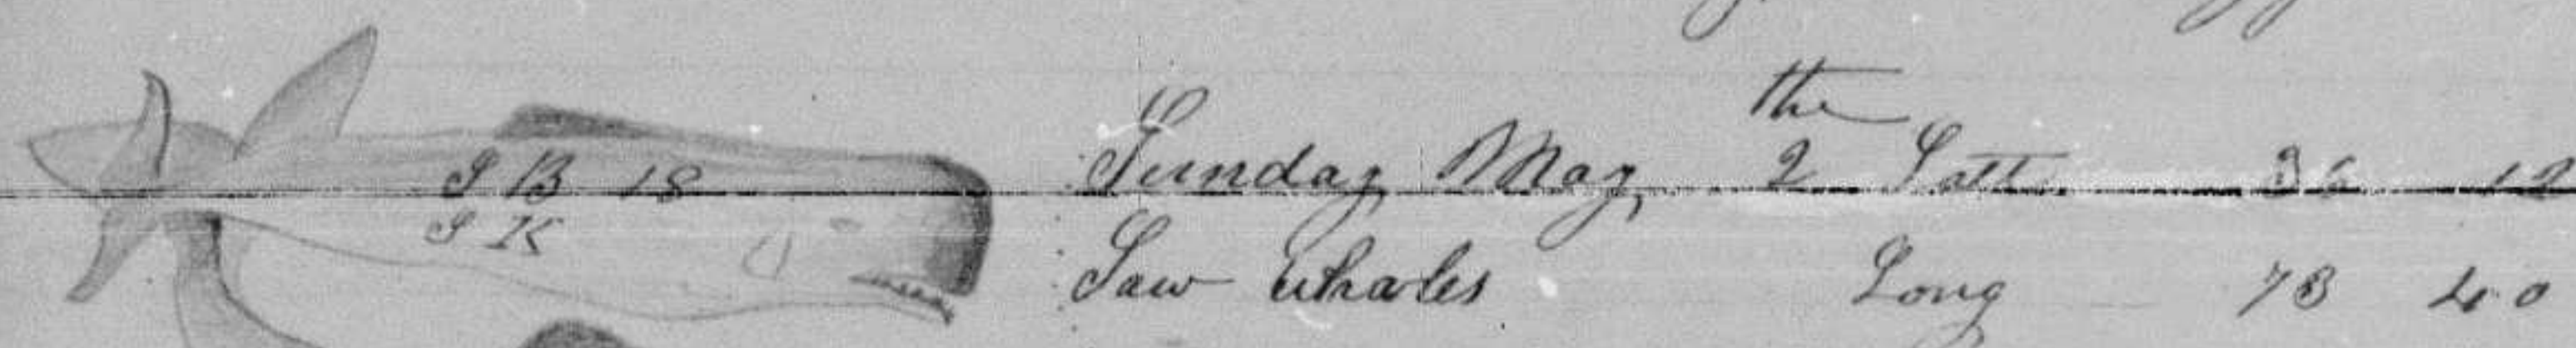 S B 18
S K
Sunday May the 2 Latt 36 12
Saw Whales Long 73 40